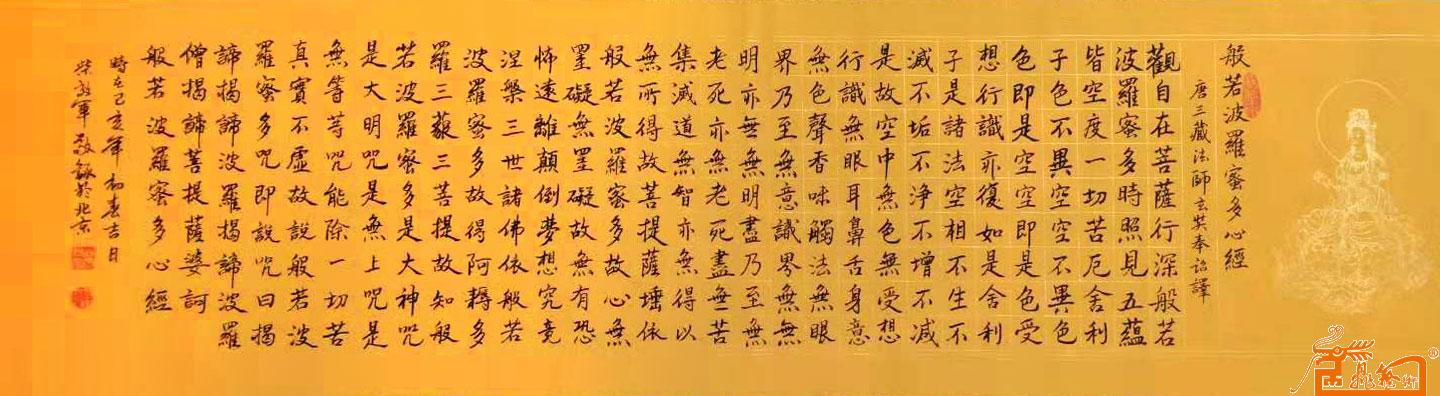 般若波羅蜜多心經
唐三藏法師玄奘奉詔譯
觀自在菩薩行深般若
波羅蜜多時照見五蘊
皆空度一切苦厄舍利
子色不異空空不異色
色即是空空即是色受
想行識亦復如是舍利
子是諸法空相不生不
滅不垢不淨不增不減
是故空中無色無受想
行識無眼耳鼻舌身意
無色聲香味觸法無眼
界乃至無意識界無無
明亦無無明盡乃至無
老死亦無老死盡無苦
集滅道無智亦無得以
無所得故菩提薩埵依
般若波羅蜜多故心無
罣礙無罣礙故無有恐
怖遠離顛倒夢想究竟
涅槃三世諸佛依般若
波羅蜜多故得阿耨多
羅三藐三菩提故知般
若波羅蜜多是大神咒
是大明咒是無上咒是
無等等咒能除一切苦
真實不虛故說般若波
羅蜜多咒即說咒曰揭
諦揭諦波羅揭諦波羅
僧揭諦菩提薩婆訶
般若波羅蜜多心經
時在己亥年初春吉日
軍敬錄於北京